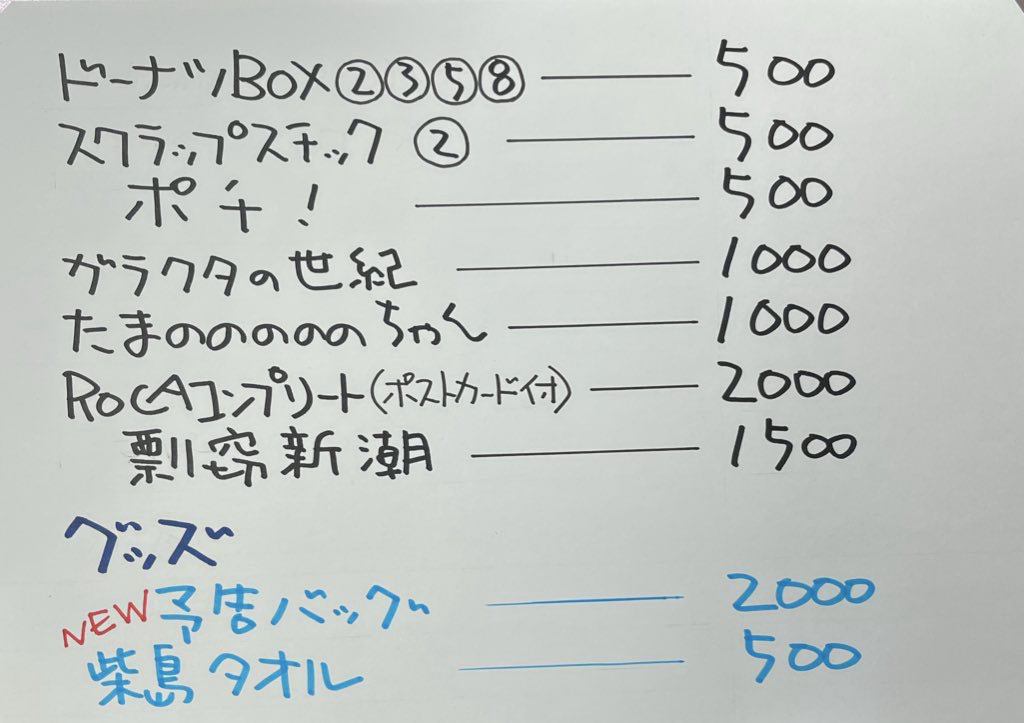 ドーナツBOX②③⑤⑧ — 500
スクラップスチック② — 500
ポチ! — 500
ガラクタの世紀 — 1000
たまのののののちゃん — 1000
ROCAコンプリート(ポストカード付) — 2000
剽窃新潮 — 1500
グッズ
NEW 予告バッグ — 2000
柴島タオル — 500